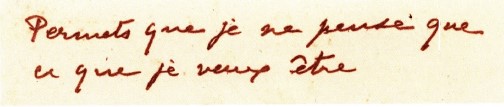 Permets que je ne pense que
ce que je veux être